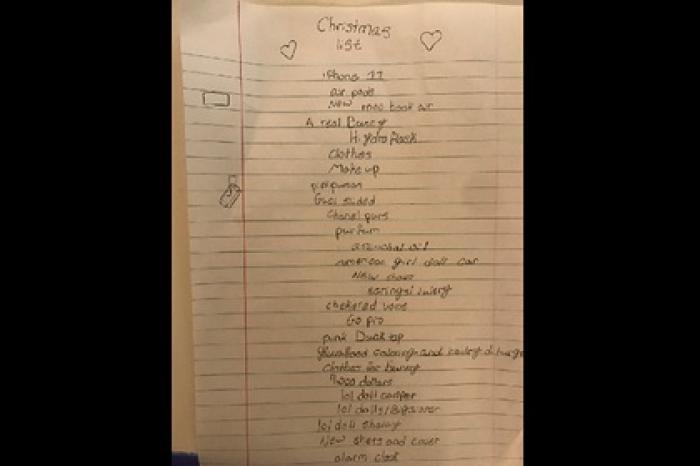 Christmas
list
iPhone 11
air pods
New mac book air
A real Bunny
Hydro flask
Clothes
Make up
Gucci slides
Chanel purs
purfum
essential oil
american girl doll car
New
chekered vans
Go pro
pink Duck tap
Clothes for bunny
4000 dollars
lol doll camper
lol dolls/Bigserser
lol doll
New shets and cover
alarm clock